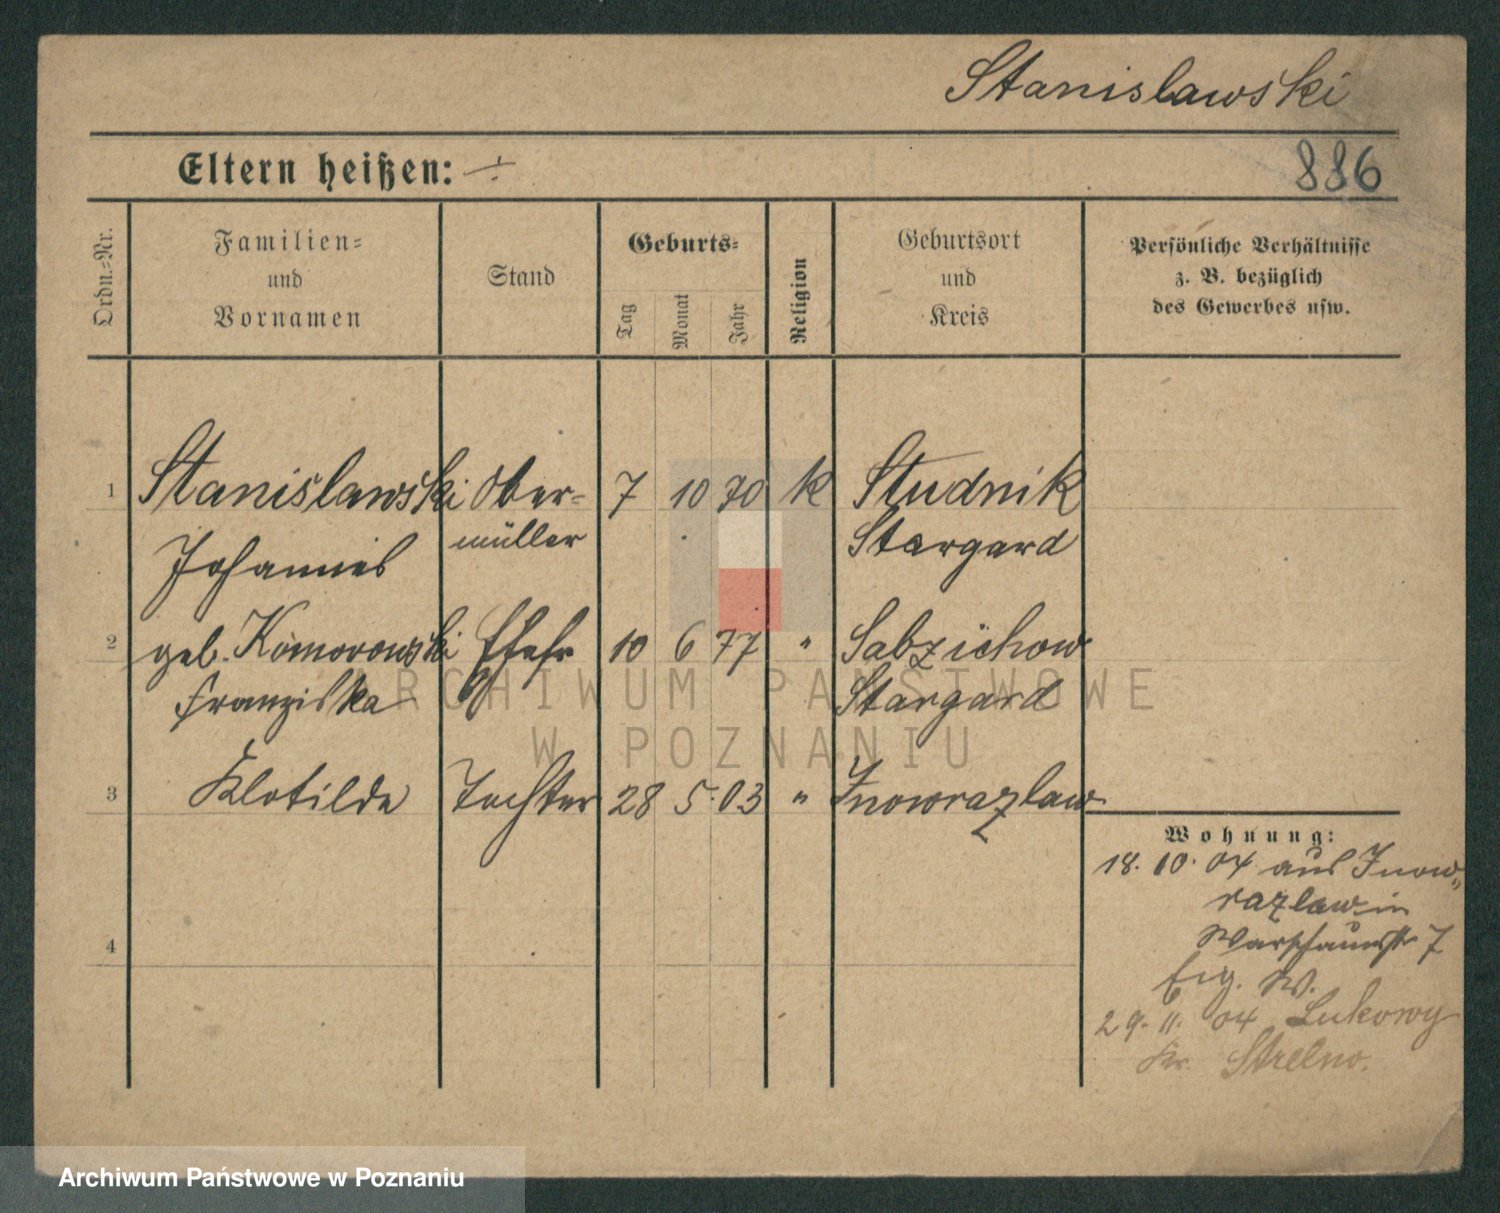 Stanislawski
Eltern heißen: ÷
886
Ordn.=Nr.
Familien=
und
Vornamen
Stand
Geburts=
Tag
Monat
Jahr
Religion
Geburtsort
und
Kreis
Persönliche Verhältnisse
z. B. bezüglich
des Gewerbes usw.
1 Stanislawski Ober= 7 10 70 k Studnik
Johannes müller Stargard
2 geb. Komorowski Ehefr 10 6 77 " Sabzichow
Franziska Stargard
3 Klotilde Tochter 28 5. 03 " Inowrazlaw
4
Wohnung:
18. 10. 04 aus Inow=
razlaw in
Warschauerstr 7
Eig. W.
29. 11. 04 Lukowy
Kr. Strelno.
ARCHIWUM PAŃSTWOWE
W POZNANIU
Archiwum Państwowe w Poznaniu